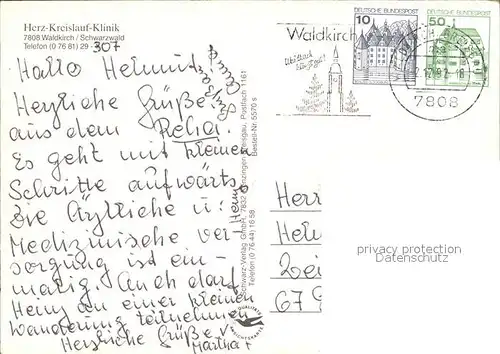 Herz-Kreislauf-Klinik
7808 Waldkirch / Schwarzwald
Telefon (0 76 81) 29 -307
Hallo Helmut!
Herzliche Grüße
aus dem Reha.
Es geht mit kleinen
Schritte aufwärts.
Die Ärztliche u.
Medizinische ver-
sorgung ist ein-
malig. Auch darf
Heinz an einer kleinen
Wanderung teilnehmen
Herzliche Grüße v.
Martha +
Heinz
Schwarz-Verlag GmbH, 7832 Kenzingen/Breisgau, Postfach 1161
Telefon (0 76 44) 16 58
Bestell-Nr. 5570 s
QUALITÄTS
ANSICHTSKARTE
Waldkirch
DEUTSCHE BUNDESPOST
10
DEUTSCHE BUNDESPOST
50
7808
Herr
Hel
67
privacy protection
Datenschutz